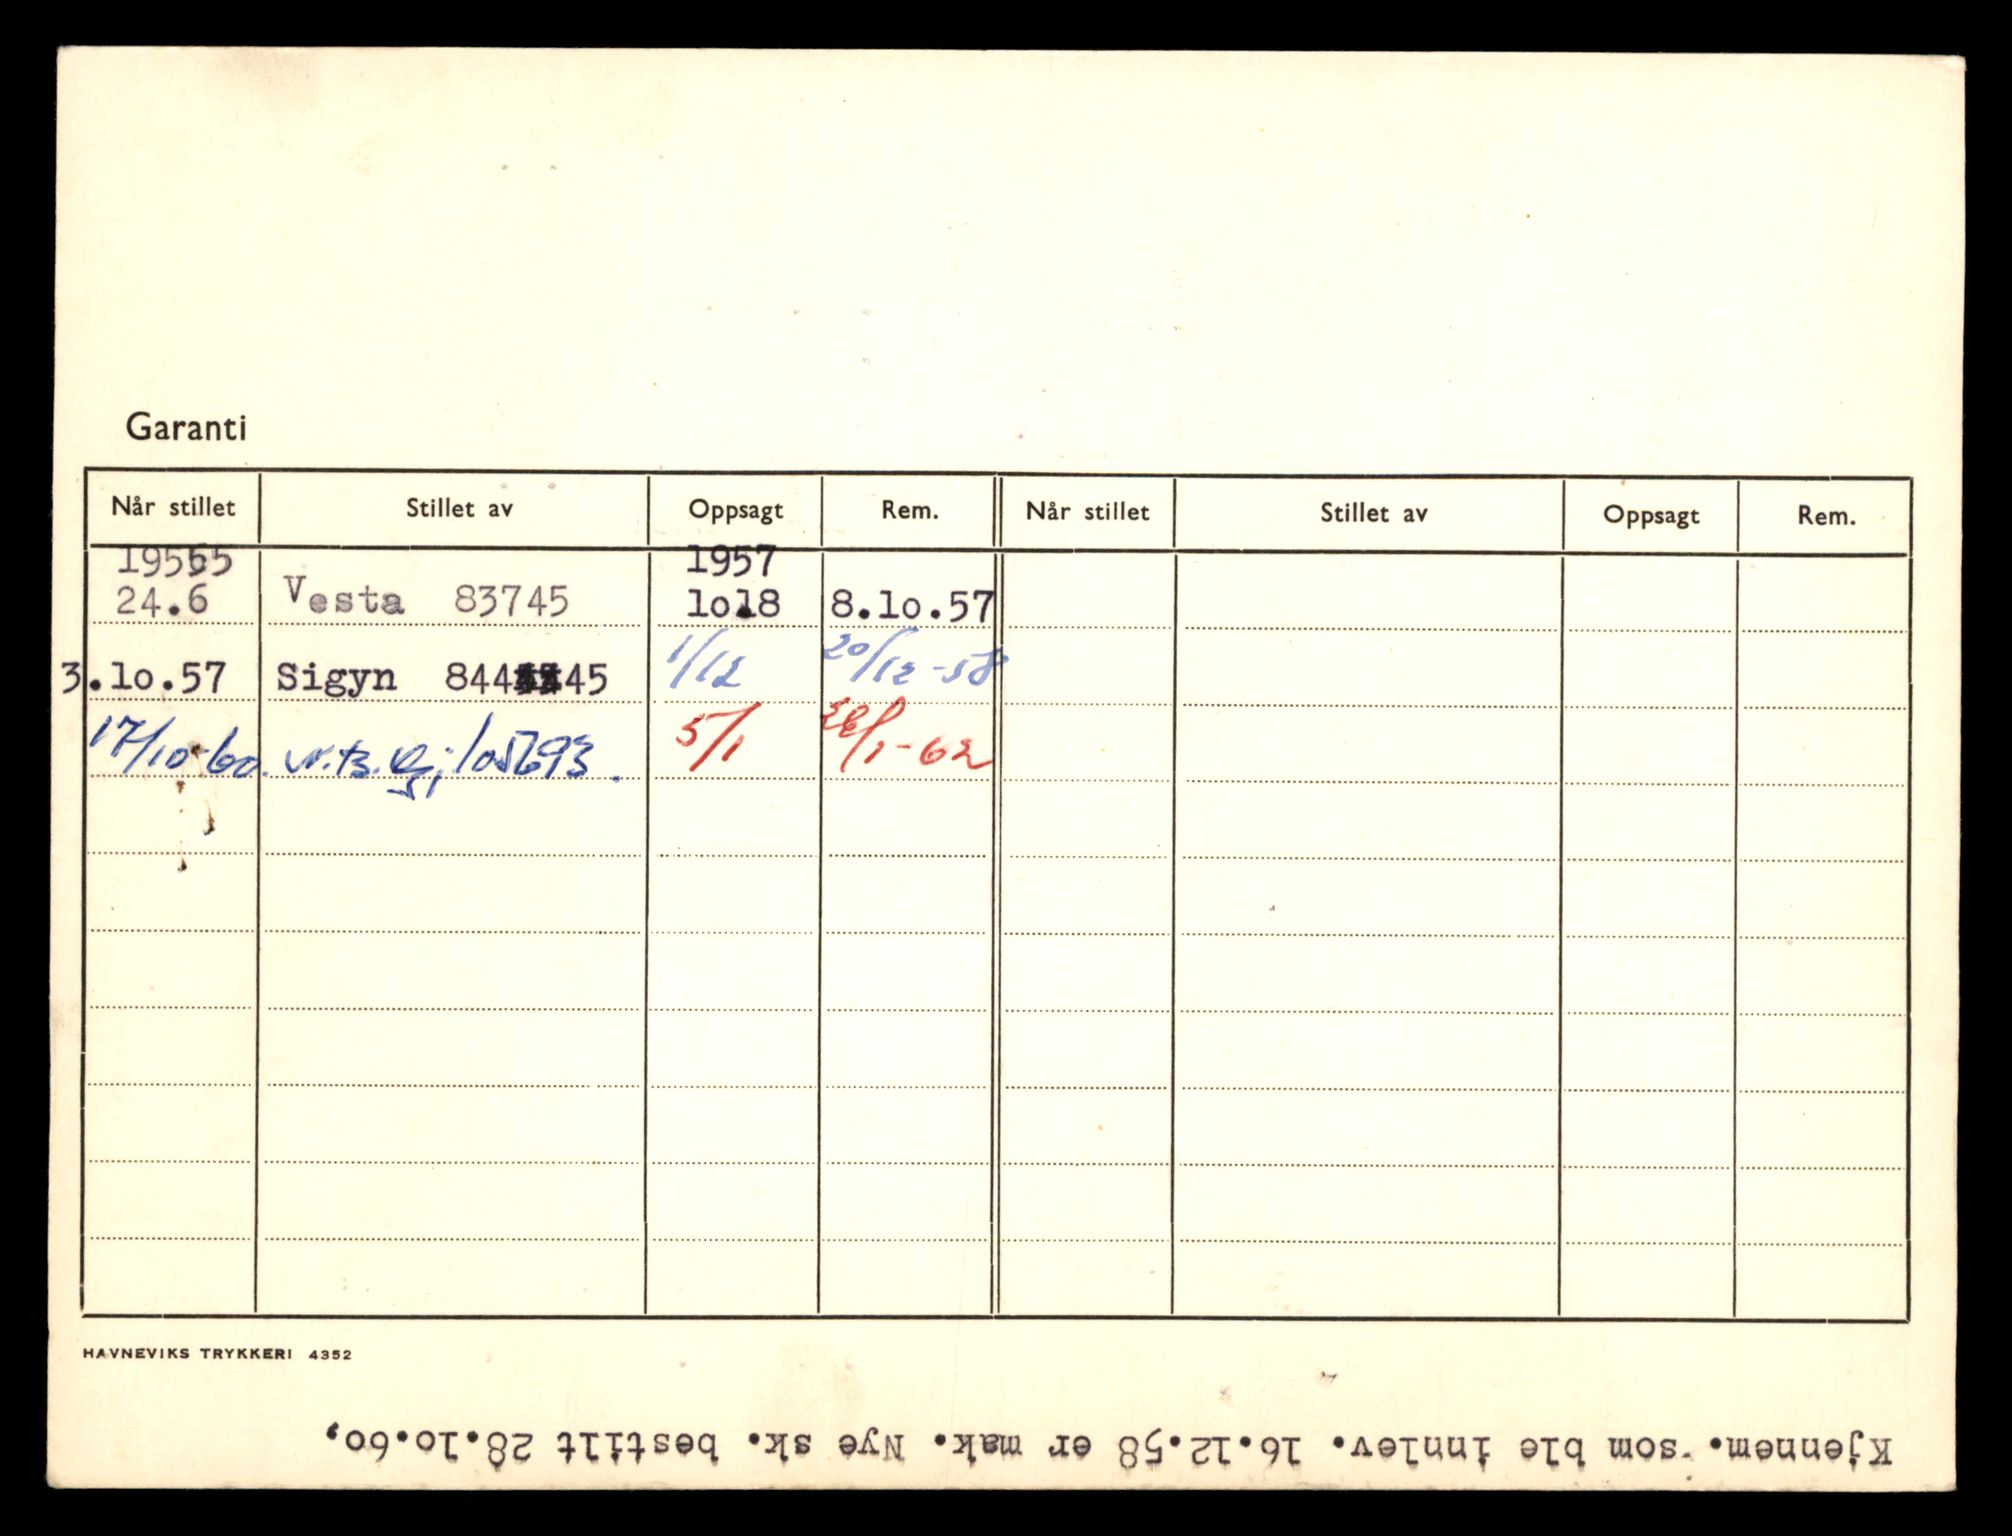 Garanti
Når stillet Stillet av Oppsagt Rem. Når stillet Stillet av Oppsagt Rem.
1955 1957
24.6 Vesta 83745 lo.18 8.lo.57
3.lo.57 Sigyn 84445 1/12 20/12-58
17/10-60. 105693. 5/1 /1-62
HAVNEVIKS TRYKKERI 4352
Kjennem. som ble innlev. 16.12.58 er mak. Nye sk. bestilt 28.lo.6o,